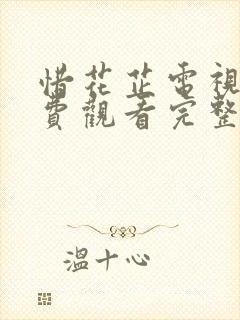 惜花芷電視
費觀看完整
溫十心